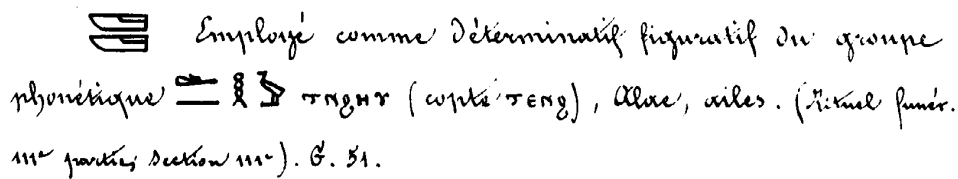 Employé comme Déterminatif figuratif du groupe
phonétique ⲧⲛϩⲏⲩ (copte ⲧⲉⲛϩ), Alae, ailes. (Rituel funér.
IIIe partie, Section IIIe). G. 51.